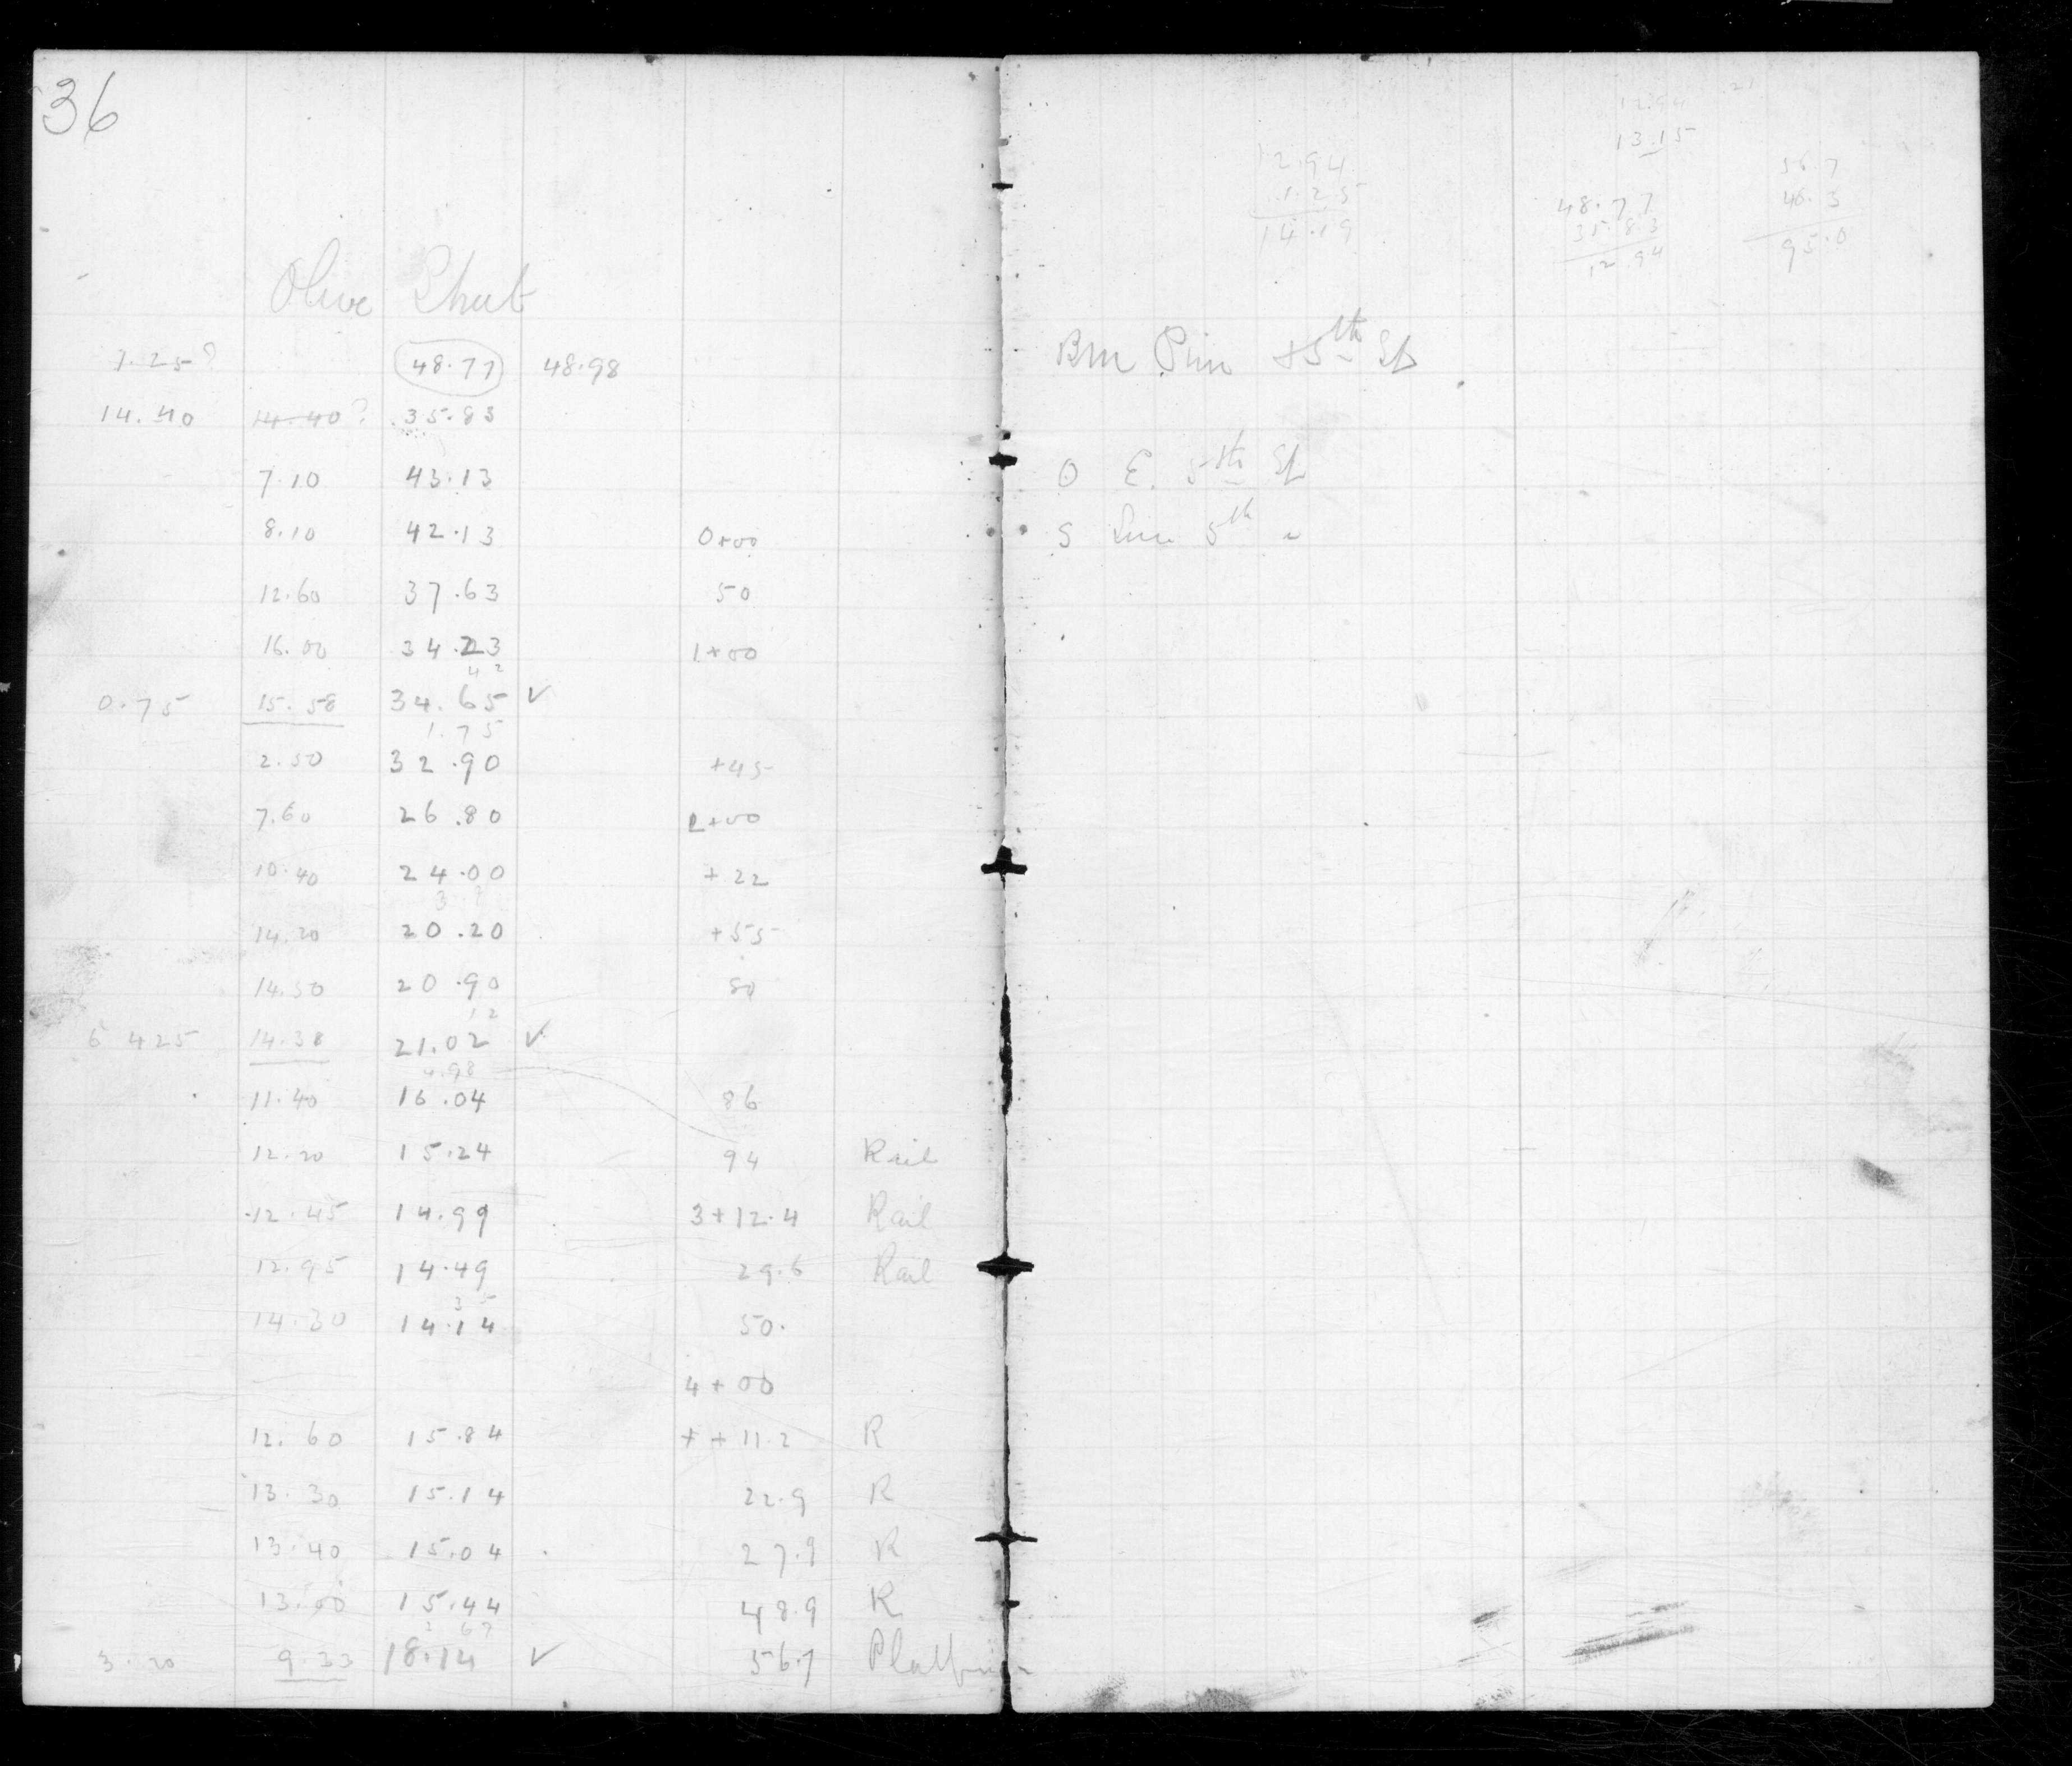 36
Olive Street
1.25? 48.77 48.98
14.40 14.40? 35.83
7.10 43.13
8.10 42.13 0+00
12.60 37.63 50
16.00 34.23 1+00
42
0.75 15.58 34.65 ✓
1.75
2.50 32.90 +45
7.60 26.80 2+00
10.40 24.00 +22
3
14.20 20.20 +55
14.50 20.90 80
12
6 425 14.38 21.02 ✓
4.98
11.40 16.04 86
12.20 15.24 94 Rail
12.45 14.99 3+12.4 Rail
12.95 14.49 29.6 Rail
35
14.30 14.14 50.
4+00
12.60 15.84 + + 11.2 R
13.30 15.14 22.9 R
13.40 15.04 27.9 R
13.00 15.44 48.9 R
2 67
3.20 9.33 18.14 ✓ 56.7 Platform
12.94 21
13.15
12.94
1.25
14.19
48.77
35.83
12.94
56.7
46.3
95.0
BM Pin 5th St
O E. 5th St
S Line 5th "